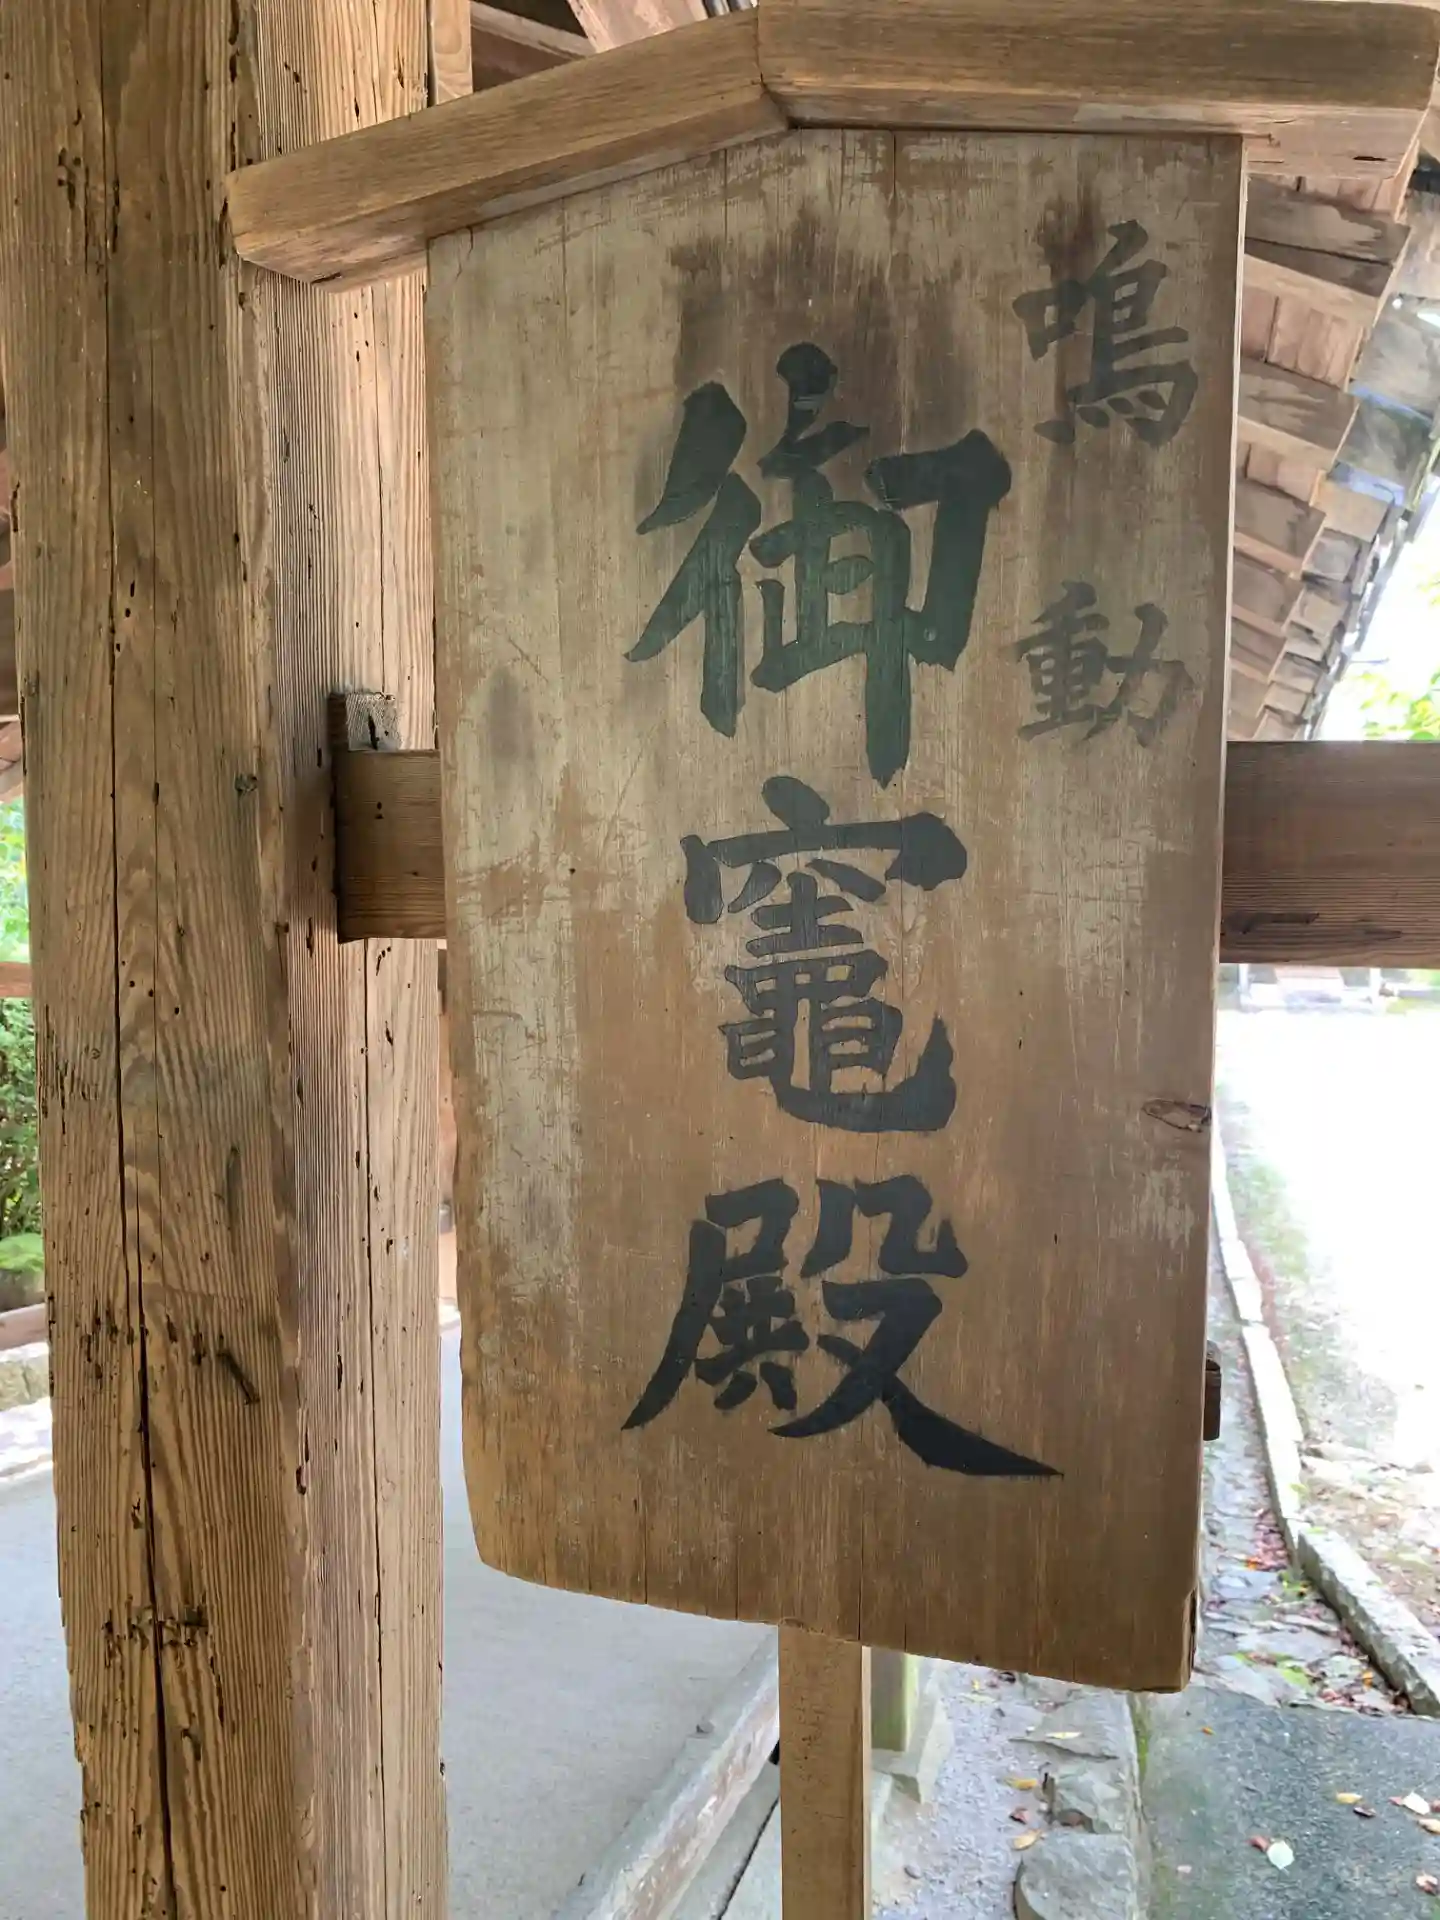 鳴動
御竈殿